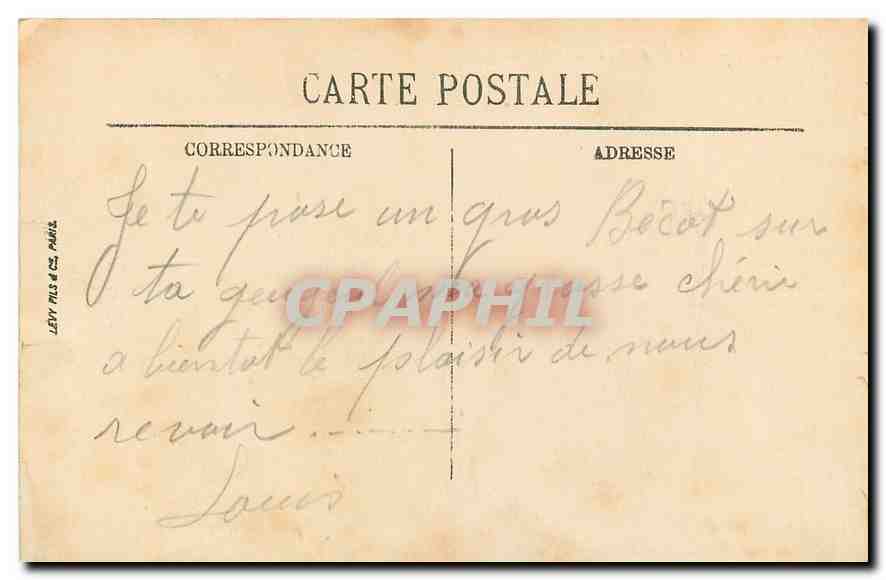 CARTE POSTALE
CORRESPONDANCE
ADRESSE
LEVY FILS & Cie, PARIS.
Je te pose un gros Bécot sur
ta ma grosse chérie
a bientot le plaisir de nous
revoir ..........
Louis
CPAPHIL